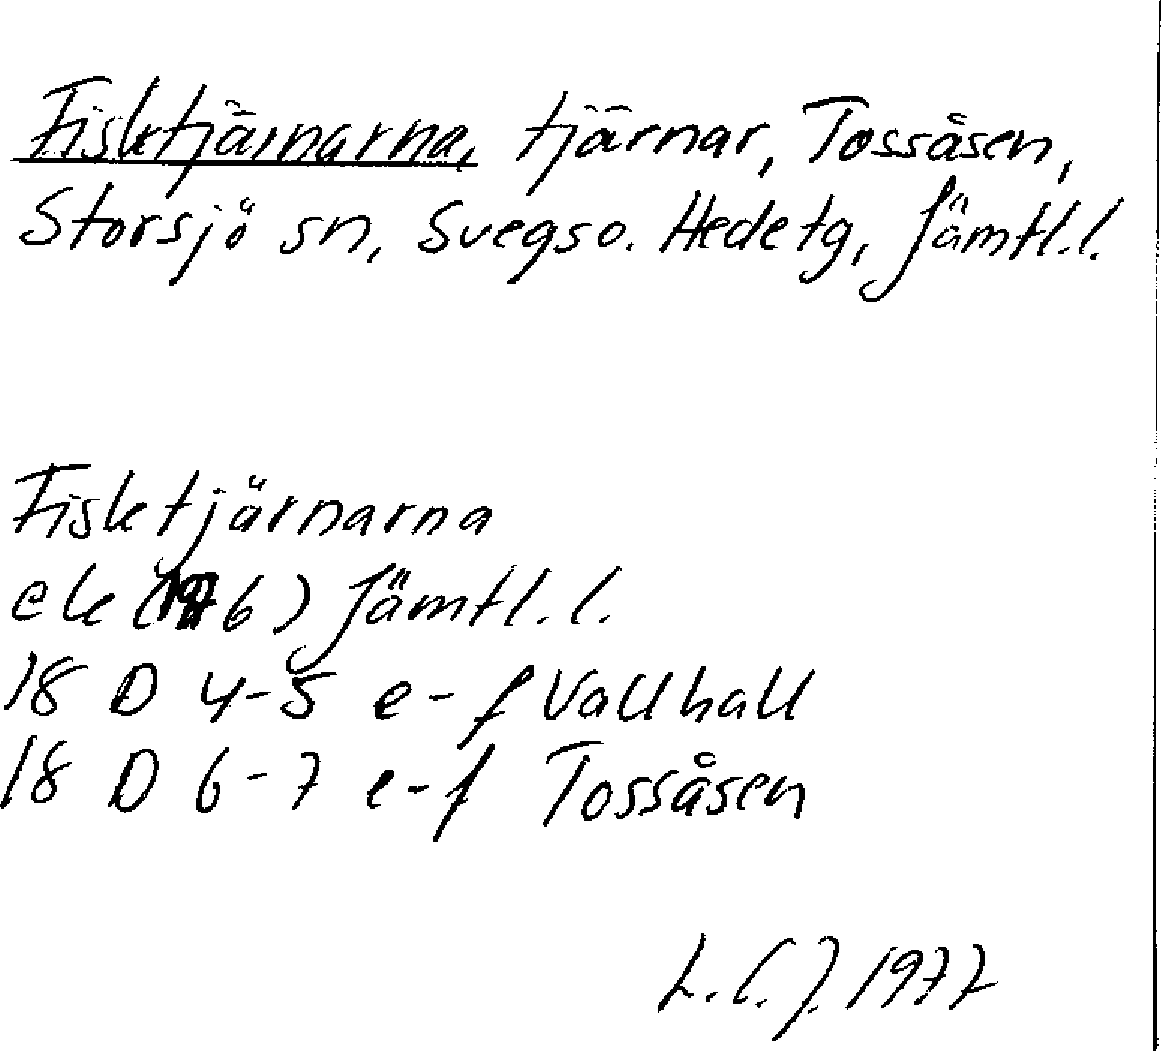 Fisktjärnarna, tjärnar, Tossåsen,
Storsjö sn, Svegs o. Hede tg, Jämtl. l.
Fisktjärnarna
ek (1976) Jämtl. l.
18 D 4-5 e-f Vallhall
18 D 6-7 e-f Tossåsen
L.C.J. 1977